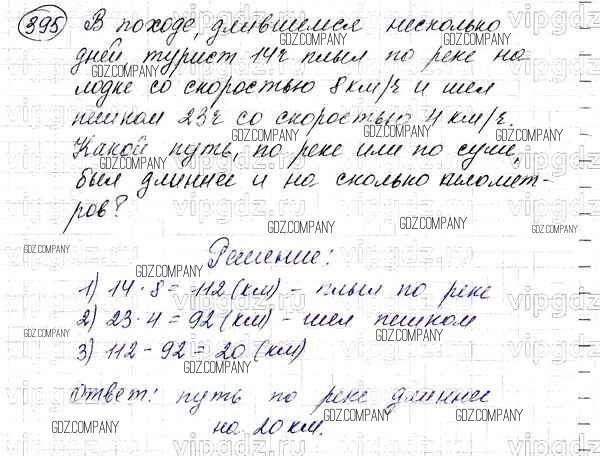 395 В походе, длившемся несколько
дней турист 14ч плыл по реке на
лодке со скоростью 8 км/ч и шел
пешком 23ч со скоростью 4 км/ч.
Какой путь, по реке или по суше,
был длиннее и на сколько километ-
ров?
Решение:
1) 14 · 8 = 112 (км) – плыл по реке
2) 23 · 4 = 92 (км) – шел пешком
3) 112 – 92 = 20 (км)
Ответ: путь по реке длиннее
на 20 км.
GDZ.COMPANY
vipgdz.ru